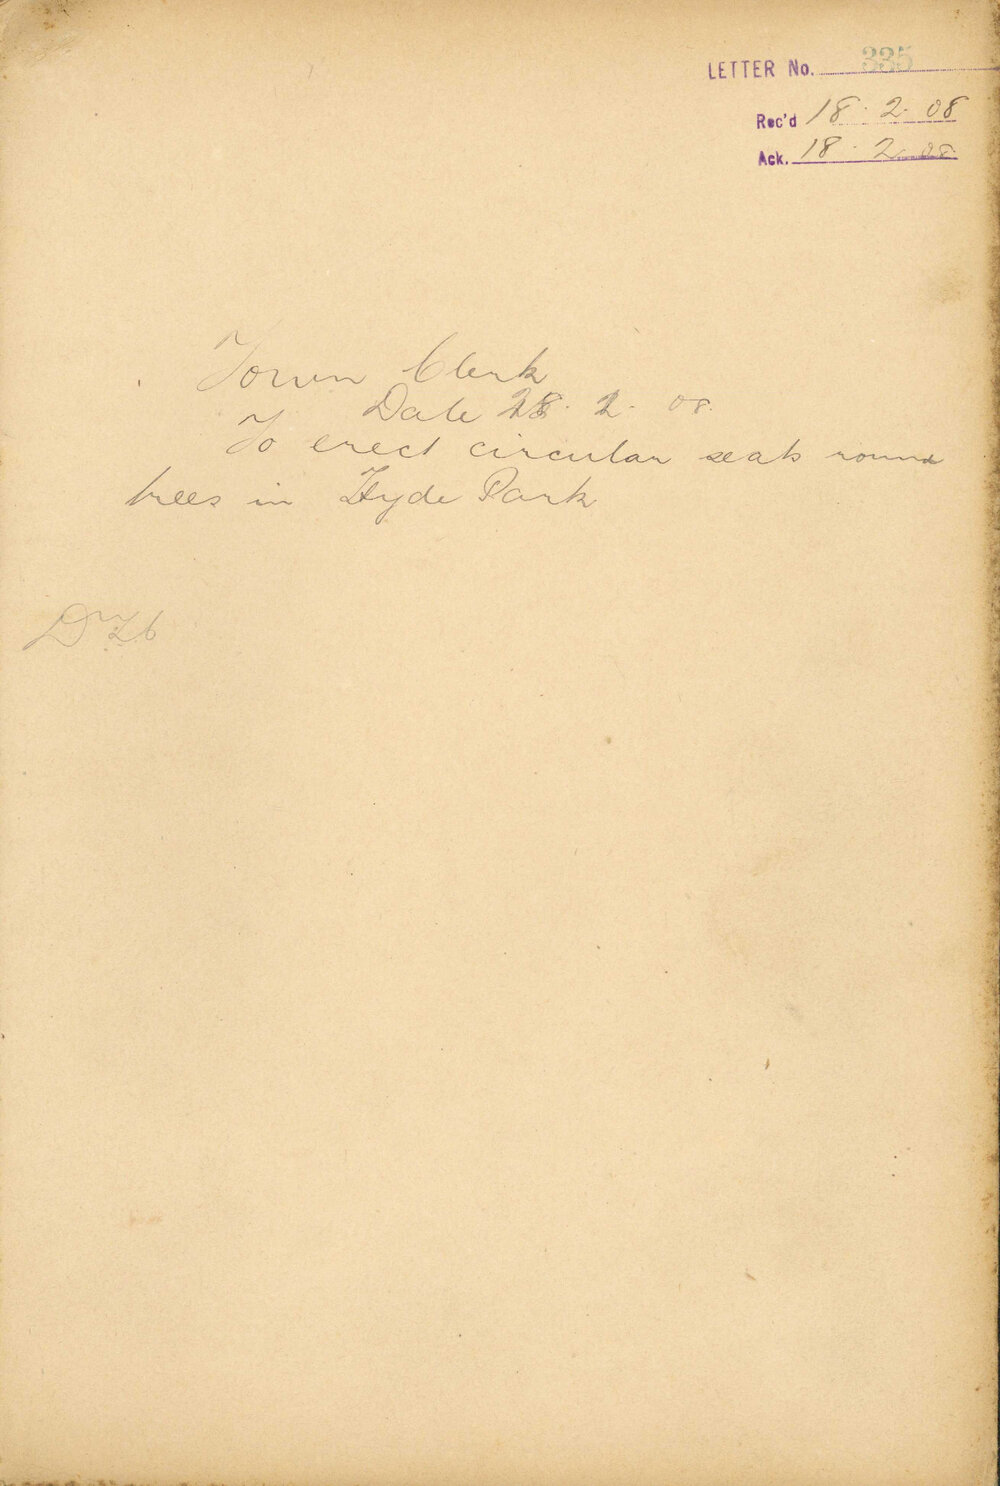 LETTER No. 335
Rec'd 18. 2. 08
Ack. 18. 2. 08
Town Clerk
Date 18. 2. 08.
To erect circular seats round
trees in Hyde Park